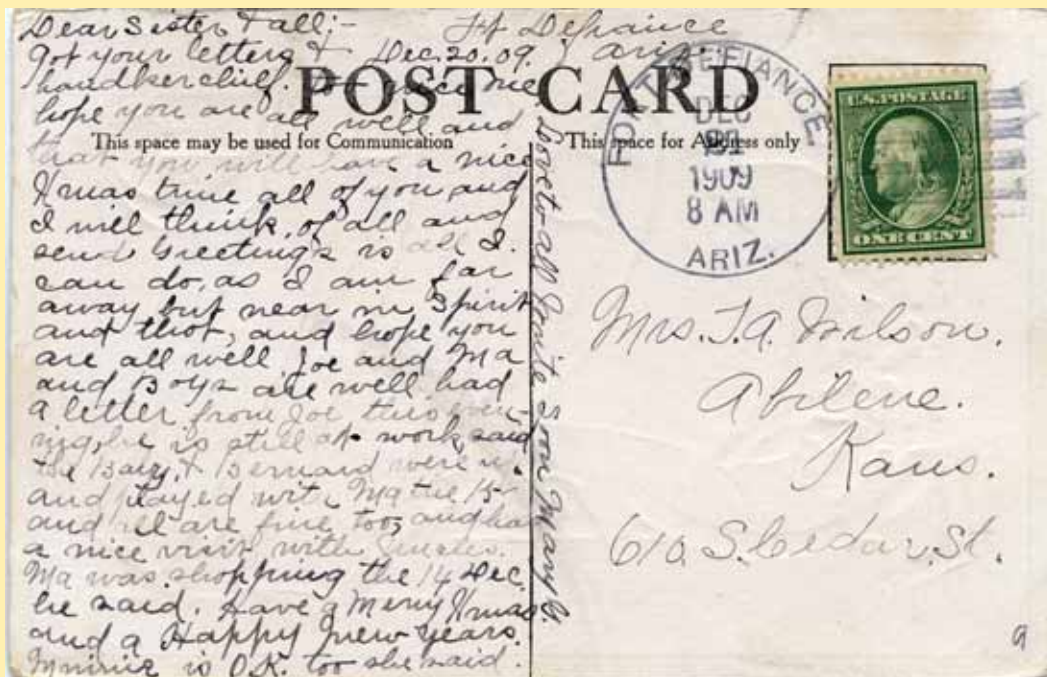 Dear Sister & all:-
Ft Defiance
Dec. 20. 09. Ariz.
Got your letters &
handkerchief. nice one
hope you are all well and
that you will have a nice
Xmas time all of you and
I will think, of all and
send Greetings is all I
can do, as I am far
away but near in Spirit
and thot, and hope you
are all well. Joe and Ma
and Boys are well. had
a letter from Joe this even-
ing, he is still at work, said
the Baby & Bernard were
and stayed with Ma the 15
and all are fine too, and had
a nice visit with
Ma was shopping the 14 Dec.
he said. Have a Merry Xmas
and a Happy New Years.
Minnie is O.K. too she said.
Love to all Write Soon Mary
POST CARD
This space may be used for Communication
This space for Address only
FORT DEFIANCE
DEC
21
1909
8 AM
ARIZ.
U.S. POSTAGE
ONE CENT
Mrs. T.A. Wilson.
Abilene.
Kans.
610 S. Cedar. St.
9